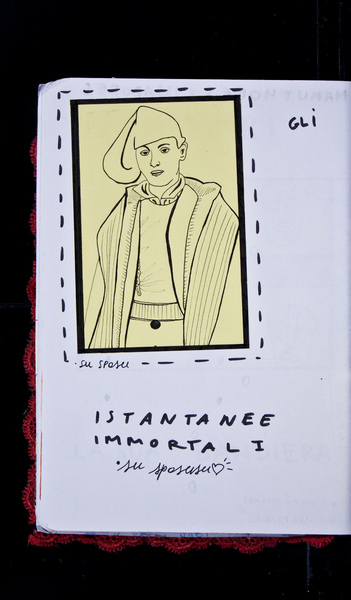 GLI
su sposu
ISTANTANEE
IMMORTALI
su sposusu